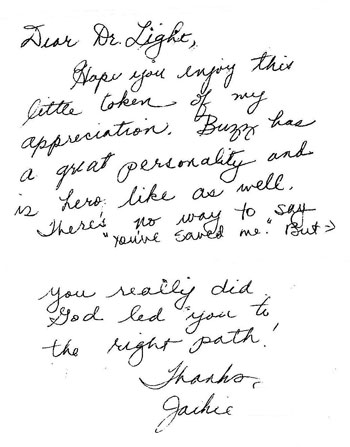 Dear Dr. Light,
Hope you enjoy this
little token of my
appreciation. Buzz has
a great personality and
is hero like as well.
There's no way to say
"You've saved me." But →
you really did.
God led you to
the right path!
Thanks,
Jackie